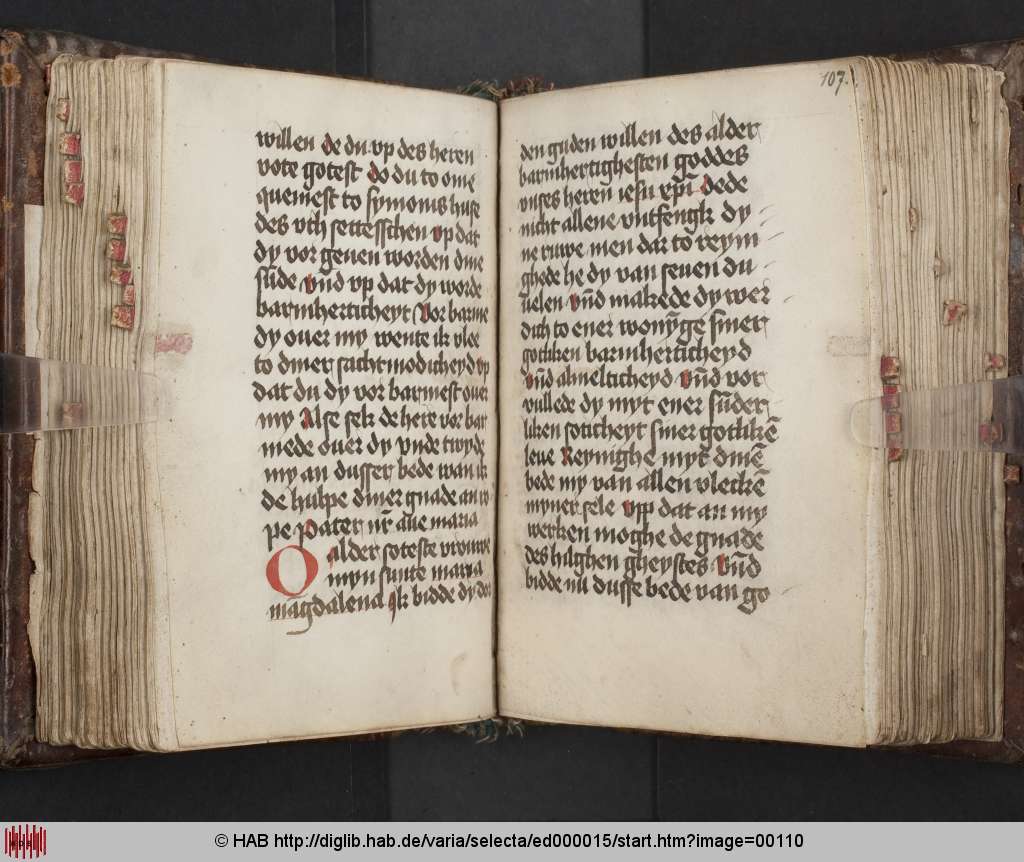 willen de du vp des heren
vote gotest do du to ome
quemest to symonis huse
des vth settesschen vp dat
dy vor geuen worden dine
sūde vn̄d vp dat dy worde
barmherticheyt Vor barme
dy ouer my wente ik vlee
to diner sachtmodicheyd vp
dat du dy vor barmest ouer
my Alse sek de here vor bar
mede ouer dy vnde twyde
my an dusser bede wan ik
de hulpe diner gnade an ro
pe Pater nr̄ aue maria
O alder soteste vrouwe
myn sunte maria
magdalena Ik bidde dy dor
107.
den guden willen des alder
barm̄hertighesten goddes
vnses heren̄ iesu xpī Dede
nicht allene vntfengk dy
ne ruwe men dar to reyni
ghede he dy van seuen du
uelen vn̄d makede dy wer
dich to ener wonȳge siner
gotliken barmherticheyd
vn̄d almelticheyd Vn̄d vor
vullede dy myt ener sūder
liken soticheyt siner gotlikē
leue Reynighe myt dinē
bede my van allen vleckē
myner sele vpp dat an my
werken moghe de gnade
des hilghen gheystes vn̄d
bidde nu dusse bede van go
© HAB http://diglib.hab.de/varia/selecta/ed000015/start.htm?image=00110